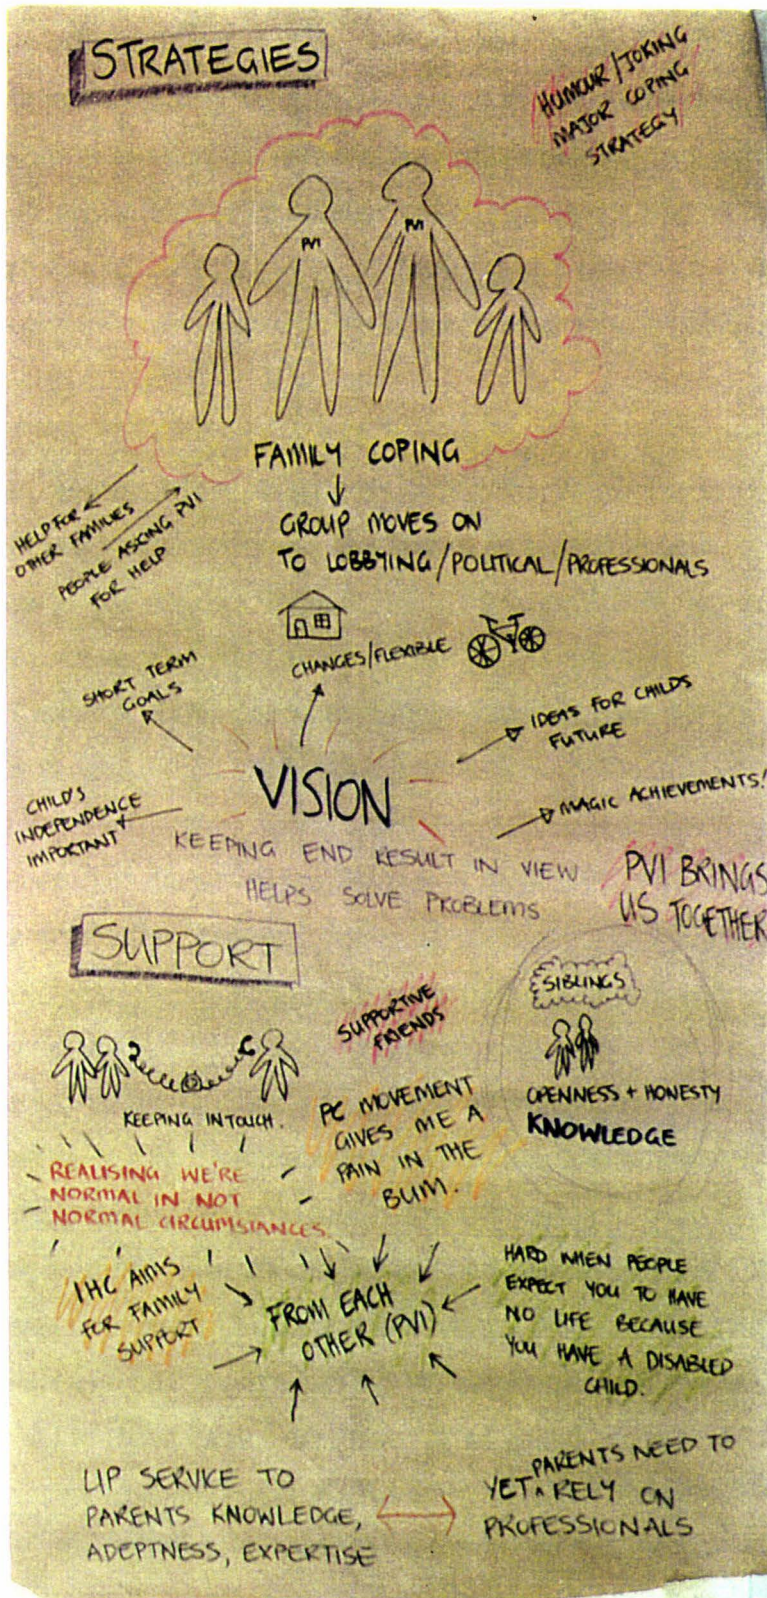 STRATEGIES
HUMOUR/JOKING
MAJOR COPING
STRATEGY
PVI
PVI
FAMILY COPING
HELP FOR
OTHER FAMILIES
PEOPLE ASKING PVI
FOR HELP
GROUP MOVES ON
TO LOBBYING/POLITICAL/PROFESSIONALS
CHANGES/FLEXIBLE
SHORT TERM
GOALS
IDEAS FOR CHILDS
FUTURE
VISION
CHILD'S
INDEPENDENCE
IMPORTANT
MAGIC ACHIEVEMENTS!
KEEPING END RESULT IN VIEW
HELPS SOLVE PROBLEMS
PVI BRINGS
US TOGETHER
SUPPORT
SIBLINGS
OPENNESS + HONESTY
KNOWLEDGE
SUPPORTIVE
FRIENDS
KEEPING IN TOUCH.
PC MOVEMENT
GIVES ME A
PAIN IN THE
BUM.
REALISING WE'RE
NORMAL IN NOT
NORMAL CIRCUMSTANCES
IHC AIMS
FOR FAMILY
SUPPORT
FROM EACH
OTHER (PVI)
HARD WHEN PEOPLE
EXPECT YOU TO HAVE
NO LIFE BECAUSE
YOU HAVE A DISABLED
CHILD.
LIP SERVICE TO
PARENTS KNOWLEDGE,
ADEPTNESS, EXPERTISE
PARENTS NEED TO
YET ^ RELY ON
PROFESSIONALS